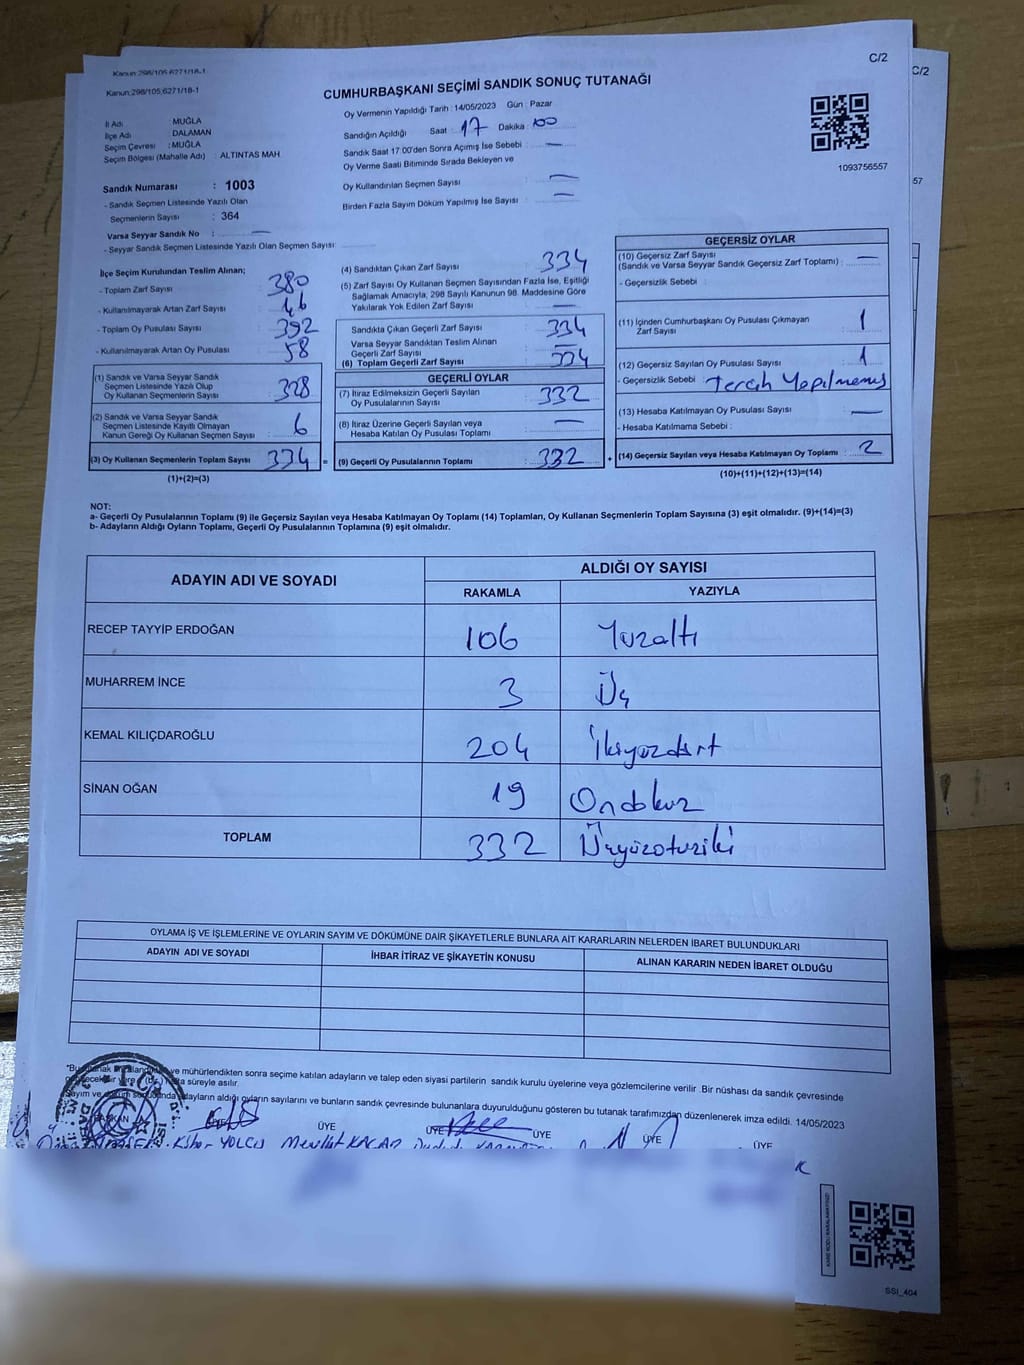 Kanun:298/105,6271/18-1
C/2
C/2
Kanun:298/105,6271/18-1
CUMHURBAŞKANI SEÇİMİ SANDIK SONUÇ TUTANAĞI
Oy Vermenin Yapıldığı Tarih : 14/05/2023 Gün : Pazar
İl Adı : MUĞLA
İlçe Adı : DALAMAN
Seçim Çevresi : MUĞLA
Seçim Bölgesi (Mahalle Adı) : ALTINTAS MAH
Sandığın Açıldığı Saat : 17 Dakika : 00
Sandık Saat 17:00'den Sonra Açımış İse Sebebi : —
Oy Verme Saati Bitiminde Sırada Bekleyen ve
Oy Kullandırılan Seçmen Sayısı : —
Birden Fazla Sayım Döküm Yapılmış İse Sayısı : —
1093756557
57
Sandık Numarası : 1003
- Sandık Seçmen Listesinde Yazılı Olan
Seçmenlerin Sayısı : 364
Varsa Seyyar Sandık No : —
- Seyyar Sandık Seçmen Listesinde Yazılı Olan Seçmen Sayısı:
İlçe Seçim Kurulundan Teslim Alınan;
- Toplam Zarf Sayısı : 380
- Kullanılmayarak Artan Zarf Sayısı : 46
- Toplam Oy Pusulası Sayısı : 392
- Kullanılmayarak Artan Oy Pusulası : 58
(1) Sandık ve Varsa Seyyar Sandık
Seçmen Listesinde Yazılı Olup
Oy Kullanan Seçmenlerin Sayısı : 328
(2) Sandık ve Varsa Seyyar Sandık
Seçmen Listesinde Kayıtlı Olmayan
Kanun Gereği Oy Kullanan Seçmen Sayısı : 6
(3) Oy Kullanan Seçmenlerin Toplam Sayısı : 334 =
(1)+(2)=(3)
(4) Sandıktan Çıkan Zarf Sayısı : 334
(5) Zarf Sayısı Oy Kullanan Seçmen Sayısından Fazla İse, Eşitliği
Sağlamak Amacıyla, 298 Sayılı Kanunun 98. Maddesine Göre
Yakılarak Yok Edilen Zarf Sayısı : —
Sandıkta Çıkan Geçerli Zarf Sayısı : 334
Varsa Seyyar Sandıktan Teslim Alınan
Geçerli Zarf Sayısı : —
(6) Toplam Geçerli Zarf Sayısı : 334
GEÇERLİ OYLAR
(7) İtiraz Edilmeksizin Geçerli Sayılan
Oy Pusulalarının Sayısı : 332
(8) İtiraz Üzerine Geçerli Sayılan veya
Hesaba Katılan Oy Pusulası Toplamı : —
(9) Geçerli Oy Pusulalarının Toplamı : 332 +
GEÇERSİZ OYLAR
(10) Geçersiz Zarf Sayısı
(Sandık ve Varsa Seyyar Sandık Geçersiz Zarf Toplamı) : —
- Geçersizlik Sebebi :
(11) İçinden Cumhurbaşkanı Oy Pusulası Çıkmayan
Zarf Sayısı : 1
(12) Geçersiz Sayılan Oy Pusulası Sayısı : 1
- Geçersizlik Sebebi : Tercih Yapılmemış
(13) Hesaba Katılmayan Oy Pusulası Sayısı : —
- Hesaba Katılmama Sebebi :
(14) Geçersiz Sayılan veya Hesaba Katılmayan Oy Toplamı : 2
(10)+(11)+(12)+(13)=(14)
NOT:
a- Geçerli Oy Pusulalarının Toplamı (9) ile Geçersiz Sayılan veya Hesaba Katılmayan Oy Toplamı (14) Toplamları, Oy Kullanan Seçmenlerin Toplam Sayısına (3) eşit olmalıdır. (9)+(14)=(3)
b- Adayların Aldığı Oyların Toplamı, Geçerli Oy Pusulalarının Toplamına (9) eşit olmalıdır.
ADAYIN ADI VE SOYADI
ALDIĞI OY SAYISI
RAKAMLA YAZIYLA
RECEP TAYYİP ERDOĞAN 106 Yüzaltı
MUHARREM İNCE 3 Üç
KEMAL KILIÇDAROĞLU 204 İkiyüzdört
SİNAN OĞAN 19 Ondokuz
TOPLAM 332 Üçyüzotuziki
OYLAMA İŞ VE İŞLEMLERİNE VE OYLARIN SAYIM VE DÖKÜMÜNE DAİR ŞİKAYETLERLE BUNLARA AİT KARARLARIN NELERDEN İBARET BULUNDUKLARI
ADAYIN ADI VE SOYADI İHBAR İTİRAZ VE ŞİKAYETİN KONUSU ALINAN KARARIN NEDEN İBARET OLDUĞU
ve mühürlendikten sonra seçime katılan adayların ve talep eden siyasi partilerin sandık kurulu üyelerine veya gözlemcilerine verilir .Bir nüshası da sandık çevresinde
süreyle asılır.
Sayım ve adayların aldığı oyların sayılarını ve bunların sandık çevresinde bulunanlara duyurulduğunu gösteren bu tutanak tarafımızdan düzenlenerek imza edildi. 14/05/2023
BAŞKAN ÜYE ÜYE ÜYE ÜYE ÜYE ÜYE
YOLCU Mevlüt KAÇAR
SSI_404